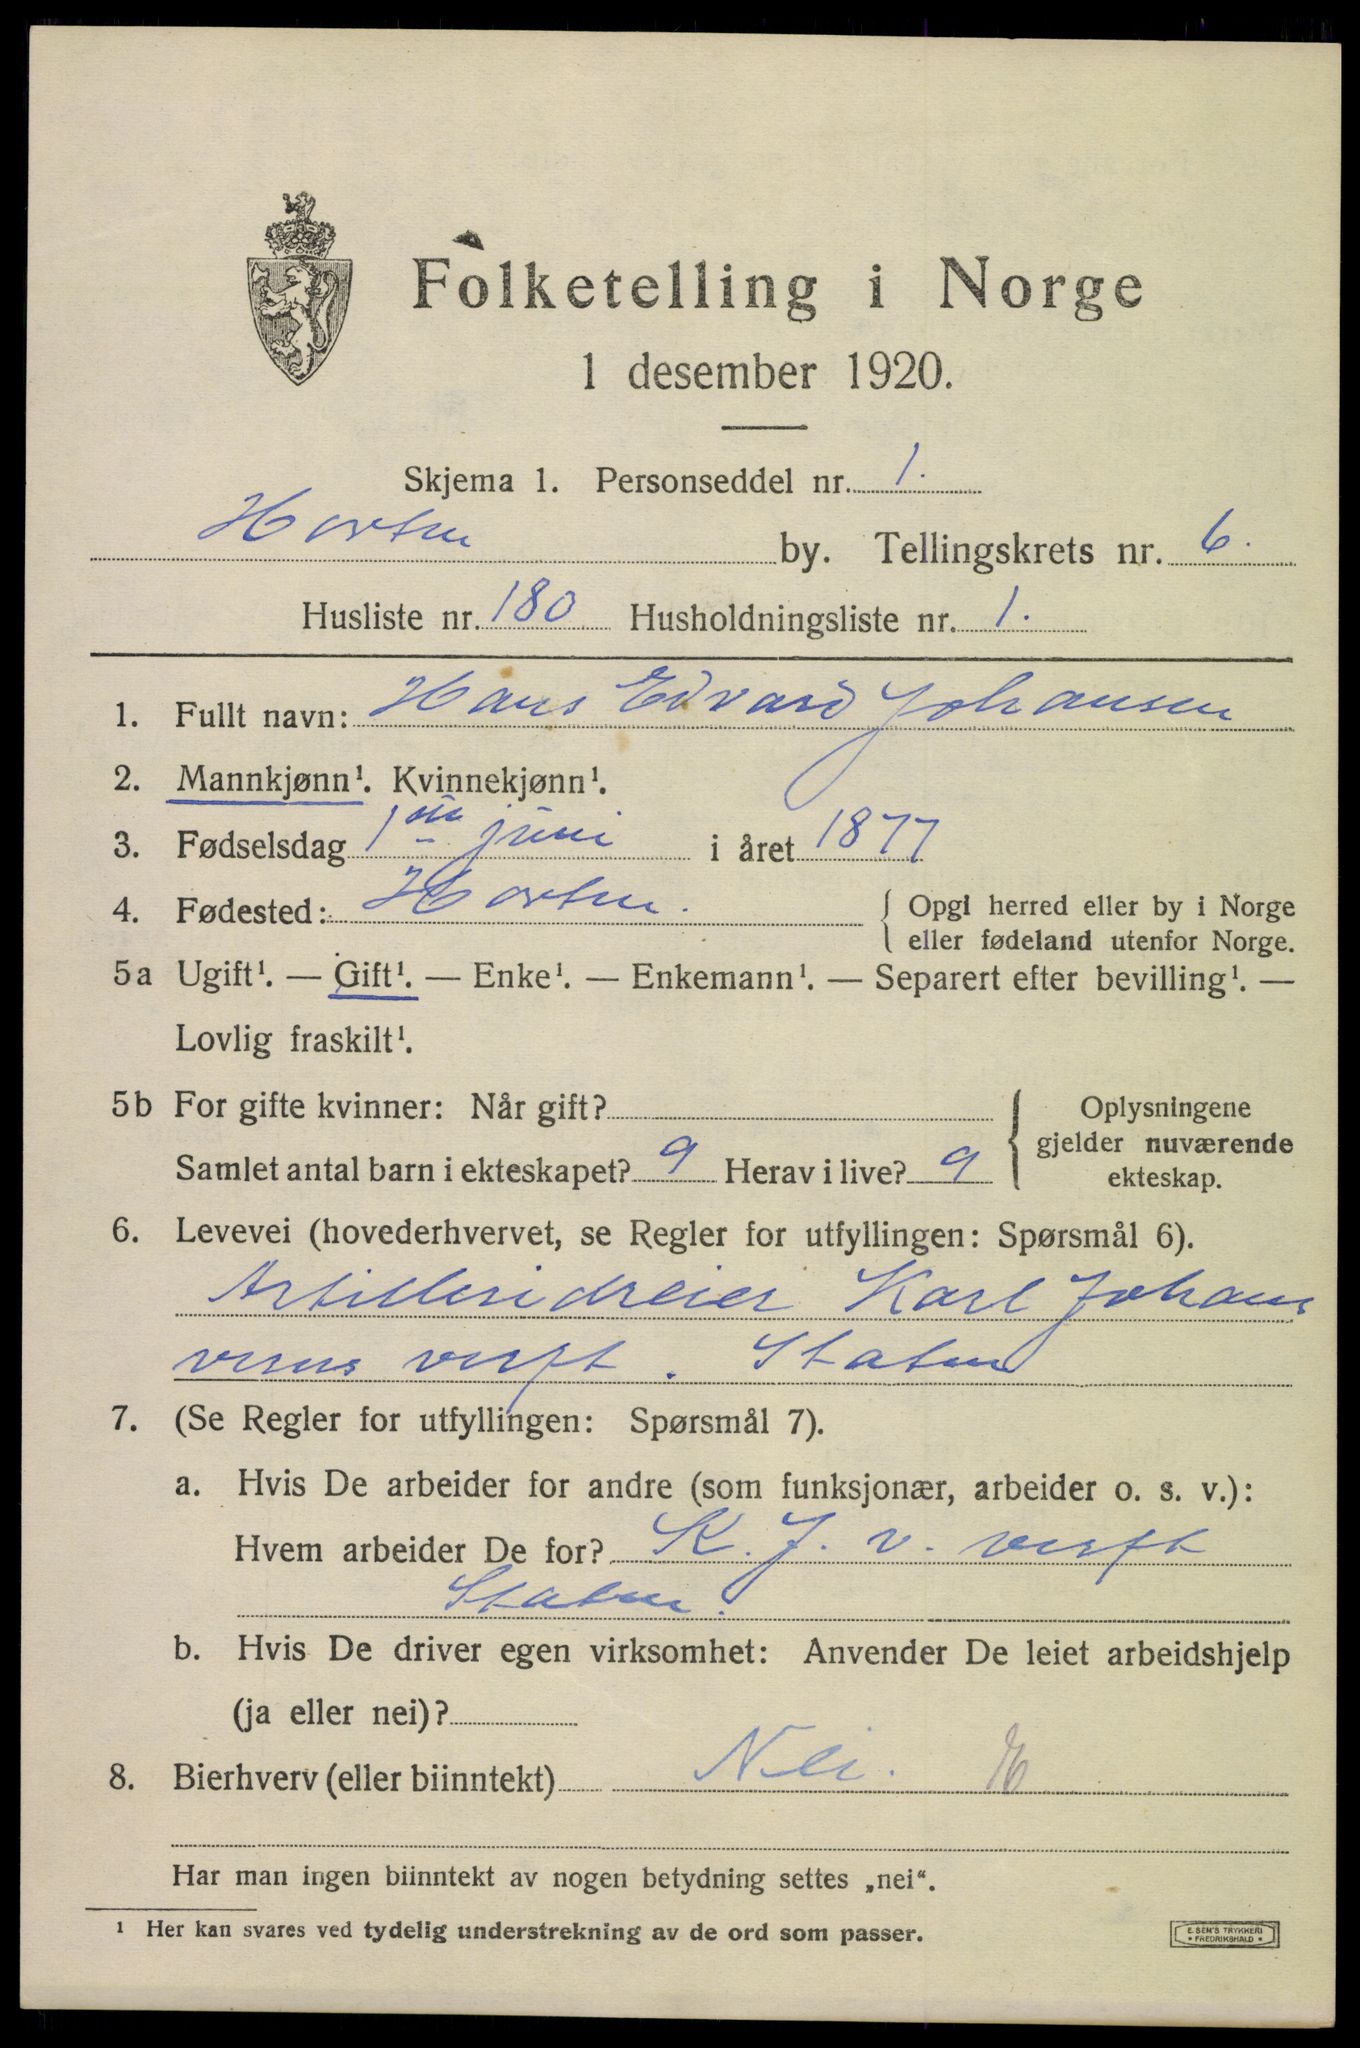 Folketelling i Norge
1 desember 1920.
Skjema 1. Personseddel nr. 1.
Horten by. Tellingskrets nr. 6.
Husliste nr. 180 Husholdningsliste nr. 1.
1. Fullt navn: Hans Edvard Johansen
2. Mannkjønn¹. Kvinnekjønn¹.
3. Fødselsdag 1ste juni i året 1877
4. Fødested: Horten. { Opgi herred eller by i Norge
eller fødeland utenfor Norge.
5a Ugift¹. — Gift¹. — Enke¹. — Enkemann¹. — Separert efter bevilling¹. —
Lovlig fraskilt¹.
5b For gifte kvinner: Når gift? { Oplysningene
gjelder nuværende
Samlet antal barn i ekteskapet? 9 Herav i live? 9 ekteskap.
6. Levevei (hovederhvervet, se Regler for utfyllingen: Spørsmål 6).
Artilleridreier Karl Johans
verns verft. Staten
7. (Se Regler for utfyllingen: Spørsmål 7).
a. Hvis De arbeider for andre (som funksjonær, arbeider o. s. v.):
Hvem arbeider De for? K. J. v. verft
Staten.
b. Hvis De driver egen virksomhet: Anvender De leiet arbeidshjelp
(ja eller nei)?
8. Bierhverv (eller biinntekt) Nei.
Har man ingen biinntekt av nogen betydning settes „nei“.
¹ Her kan svares ved tydelig understrekning av de ord som passer.
E. SEM'S TRYKKERI
* FREDRIKSHALD *